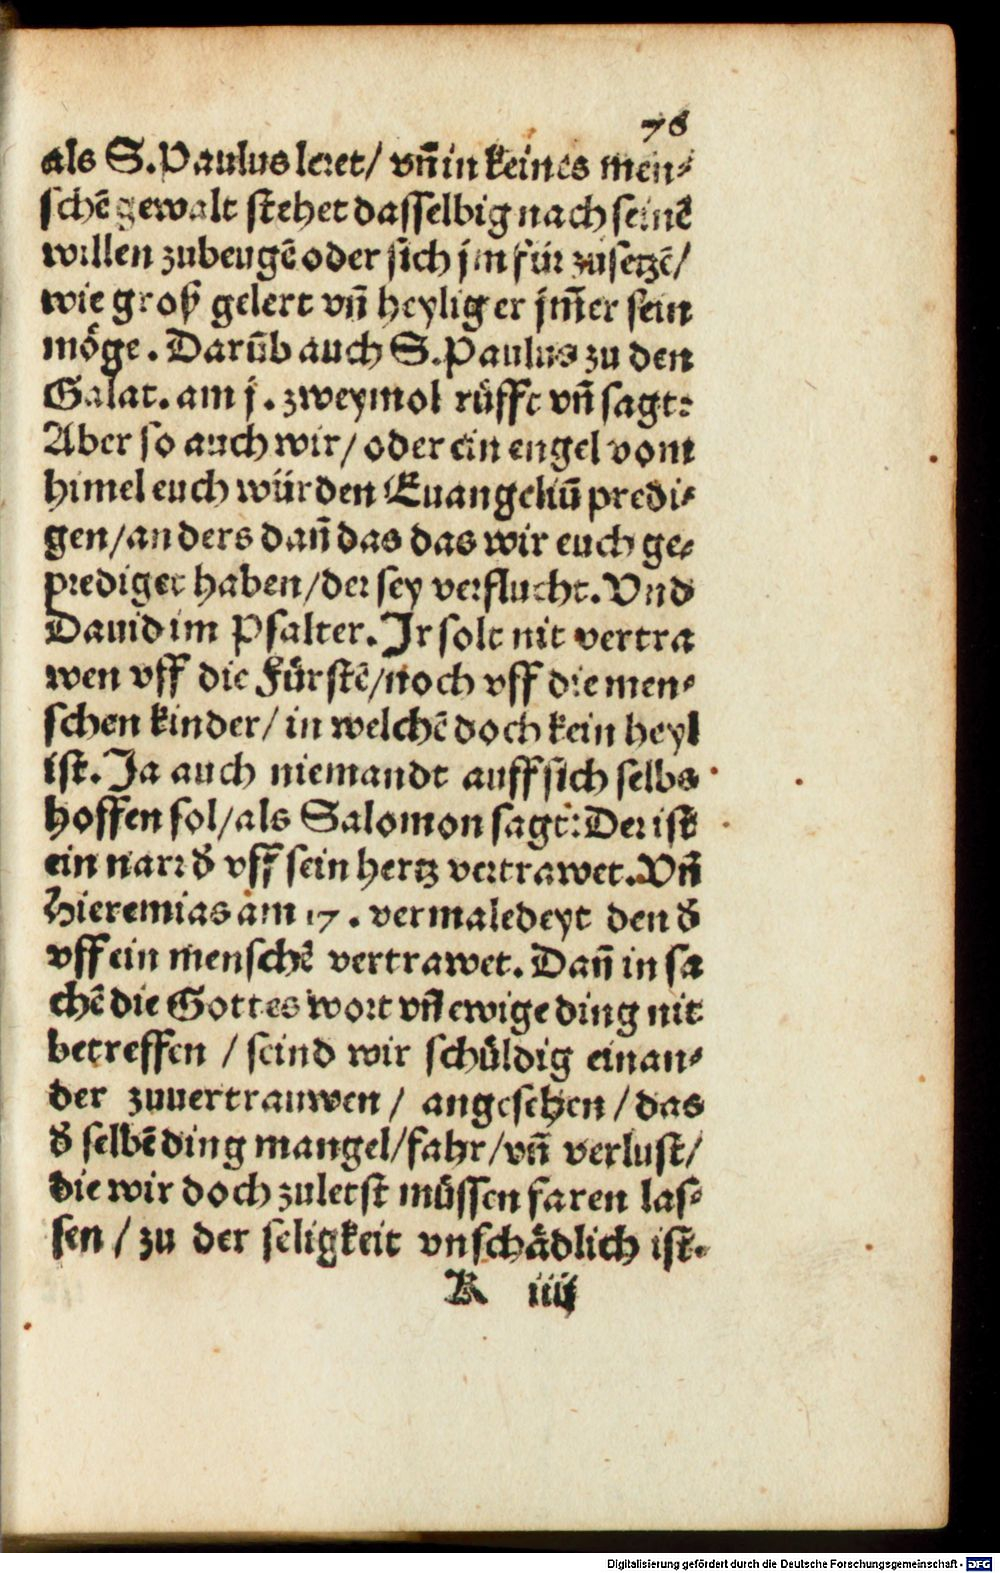 76
als S. Paulus leret/ vñ in keines men⸗
schē gewalt stehet dasselbig nach seinē
willen zubeugē oder sich jm für zusetzē/
wie groß gelert vñ heylig er jm̄er sein
möge. Darūb auch S. Paulus zu den
Galat. am j. zweymol rüfft vñ sagt:
Aber so auch wir/ oder ein engel vom
himel euch würden Euangeliū predi⸗
gen/anders dañ das das wir euch ge⸗
prediget haben/der sey verflucht. Vnd
Dauid im Psalter. Jr solt nit vertra
wen vff die Fürstē/noch vff die men⸗
schen kinder/ in welchē doch kein heyl
ist. Ja auch niemandt auff sich selbs
hoffen sol/als Salomon sagt: Der ist
ein narr d̄ vff sein hertz vertrawet. Vñ
Hieremias am 17. vermaledeyt den d̄
vff ein menschē vertrawet. Dañ in sa
chē die Gottes wort vñ ewige ding nit
betreffen / seind wir schüldig einan⸗
der zuuertrauwen/ angesehen/ das
d̄ selbē ding mangel/fahr/vñ verlust/
die wir doch zuletst müssen faren las⸗
sen / zu der seligkeit vnschädlich ist.
K iiij
Digitalisierung gefördert durch die Deutsche Forschungsgemeinschaft - DFG